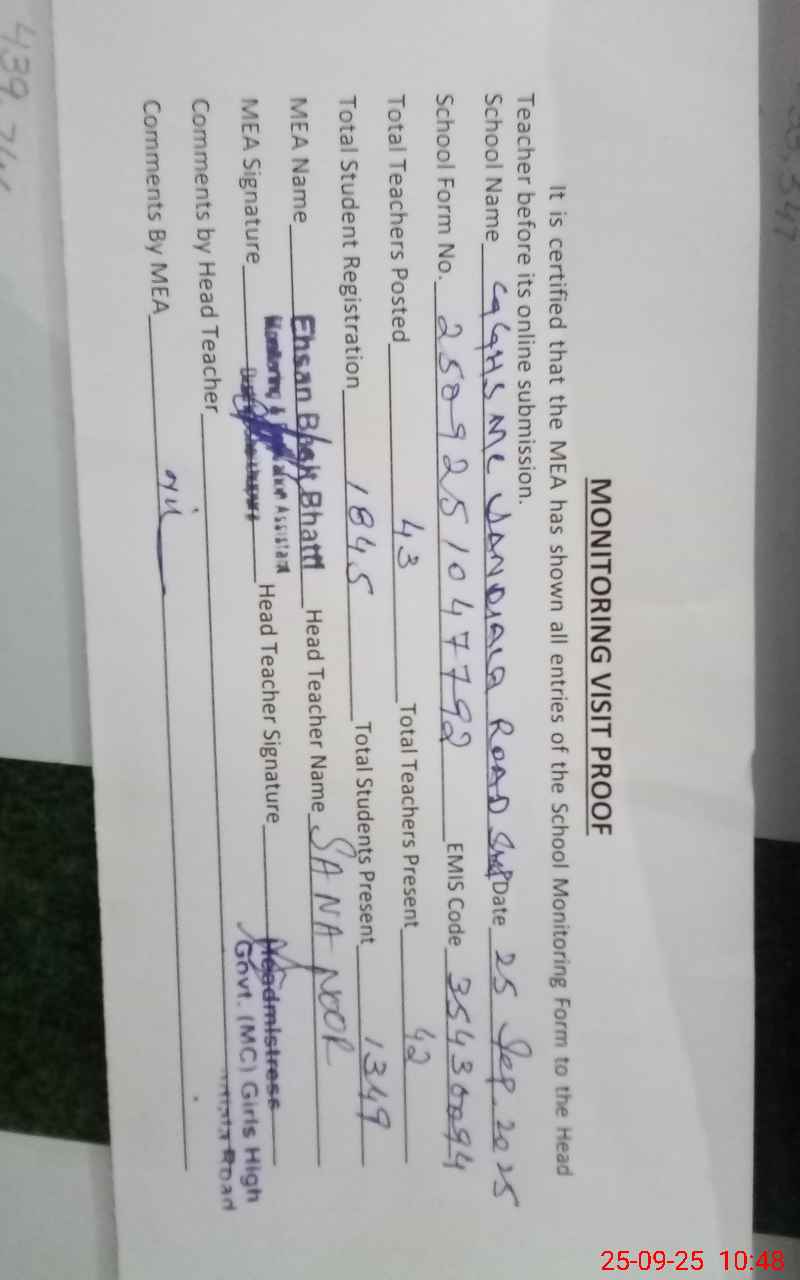 MONITORING VISIT PROOF
It is certified that the MEA has shown all entries of the School Monitoring Form to the Head
Teacher before its online submission.
School Name GGHS MC JANDIALA ROAD Date 25 Sep. 2025
School Form No. 250925104 7792 EMIS Code 35430094
Total Teachers Posted 43 Total Teachers Present 42
Total Student Registration 1845 Total Students Present 1349
MEA Name Ehsan Bhatti Head Teacher Name SANA NOOR
Monitoring & Assistant
MEA Signature Head Teacher Signature Headmistress
Govt. (MC) Girls High
Road
Comments by Head Teacher
Comments By MEA Nil
25-09-25 10:48